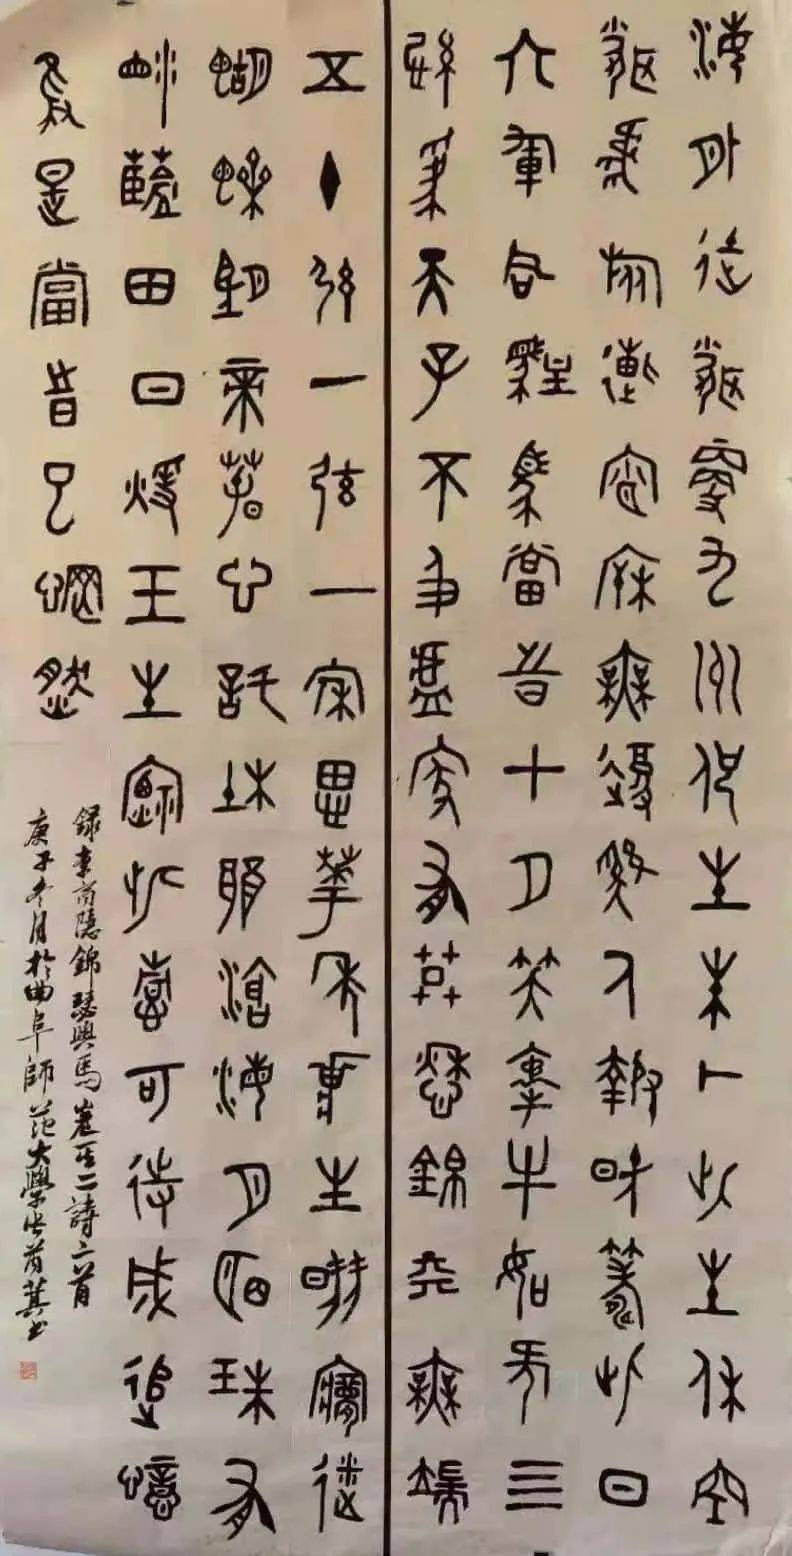 海外徒聞更九州他生未卜此生休空
聞虎旅傳宵柝無復雞人報曉籌此日
六軍同駐馬當時七夕笑牽牛如何四
紀為天子不及盧家有莫愁錦瑟無端
五十弦一弦一柱思華年莊生曉夢迷
蝴蝶望帝春心託杜鵑滄海月明珠有
淚藍田日暖玉生煙此情可待成追憶
只是當時已惘然
錄李商隱錦瑟與馬嵬其二詩二首
庚子冬月於曲阜師范大學